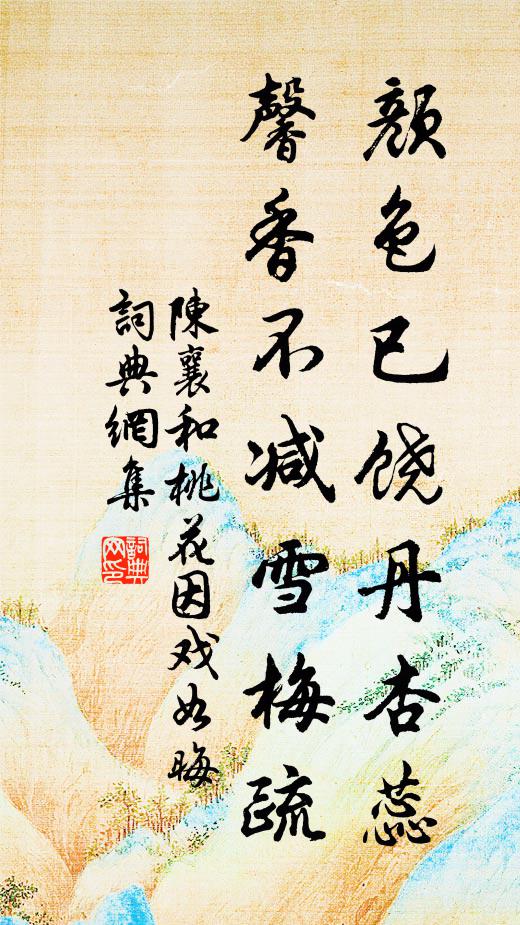 颜色已饶丹杏蕊
馨香不减雪梅疏
陳襄和桃花因戏如晦
詞典網集
詞典网印